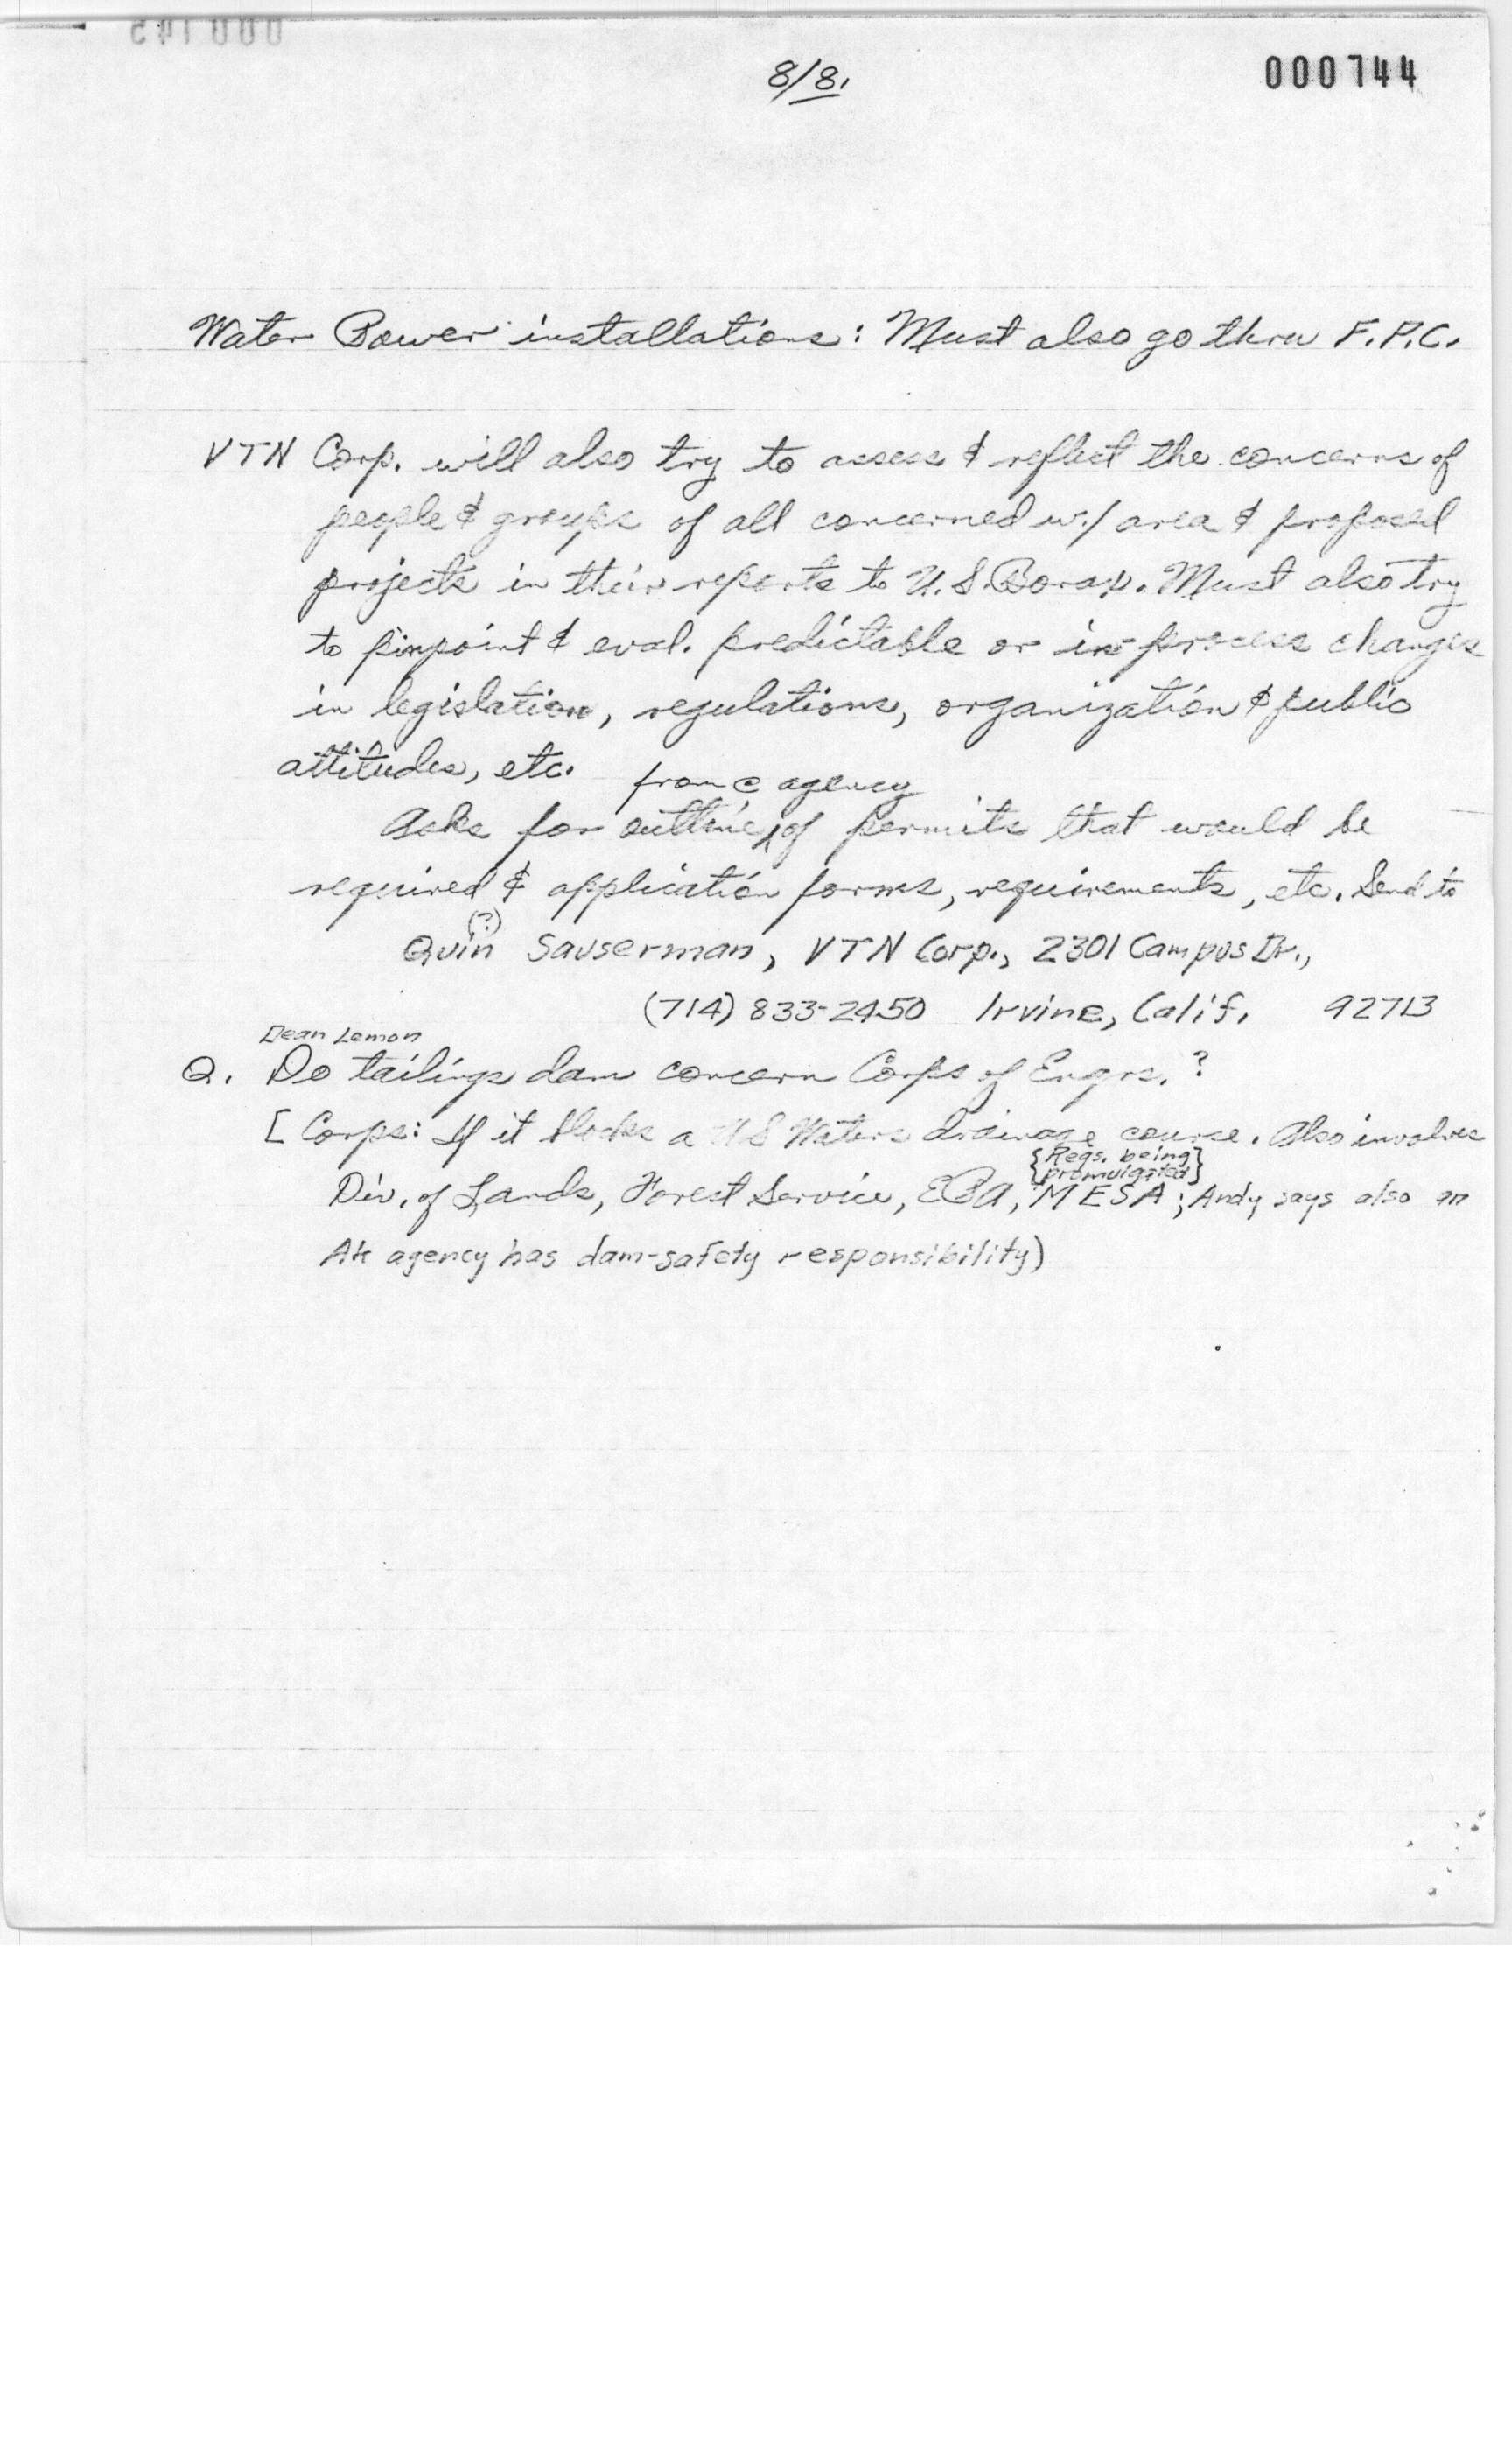 8/8.
000744
Water Power installations: Must also go thru F.P.C.
VTN Corp. will also try to assess & reflect the concerns of
people & groups of all concerned w./ area & proposed
projects in their reports to U.S. Borax. Must also try
to pinpoint & eval. predictable or in process changes
in legislation, regulations, organization & public
attitudes, etc.
from e agency
Asks for outline, of permits that would be
required & application forms, requirements, etc. Send to
(?)
Quin Sauserman, VTN Corp., 2301 Campus Dr.,
(714) 833-2450 Irvine, Calif. 92713
Dean Lemon
Q. Do tailings dam concern Corps of Engrs.?
[ Corps: If it blocks a US Waters drainage course. Also involves
{Regs. being
promulgated}
Div. of Lands, Forest Service, EPA, MESA; Andy says also an
Ak agency has dam-safety responsibility)